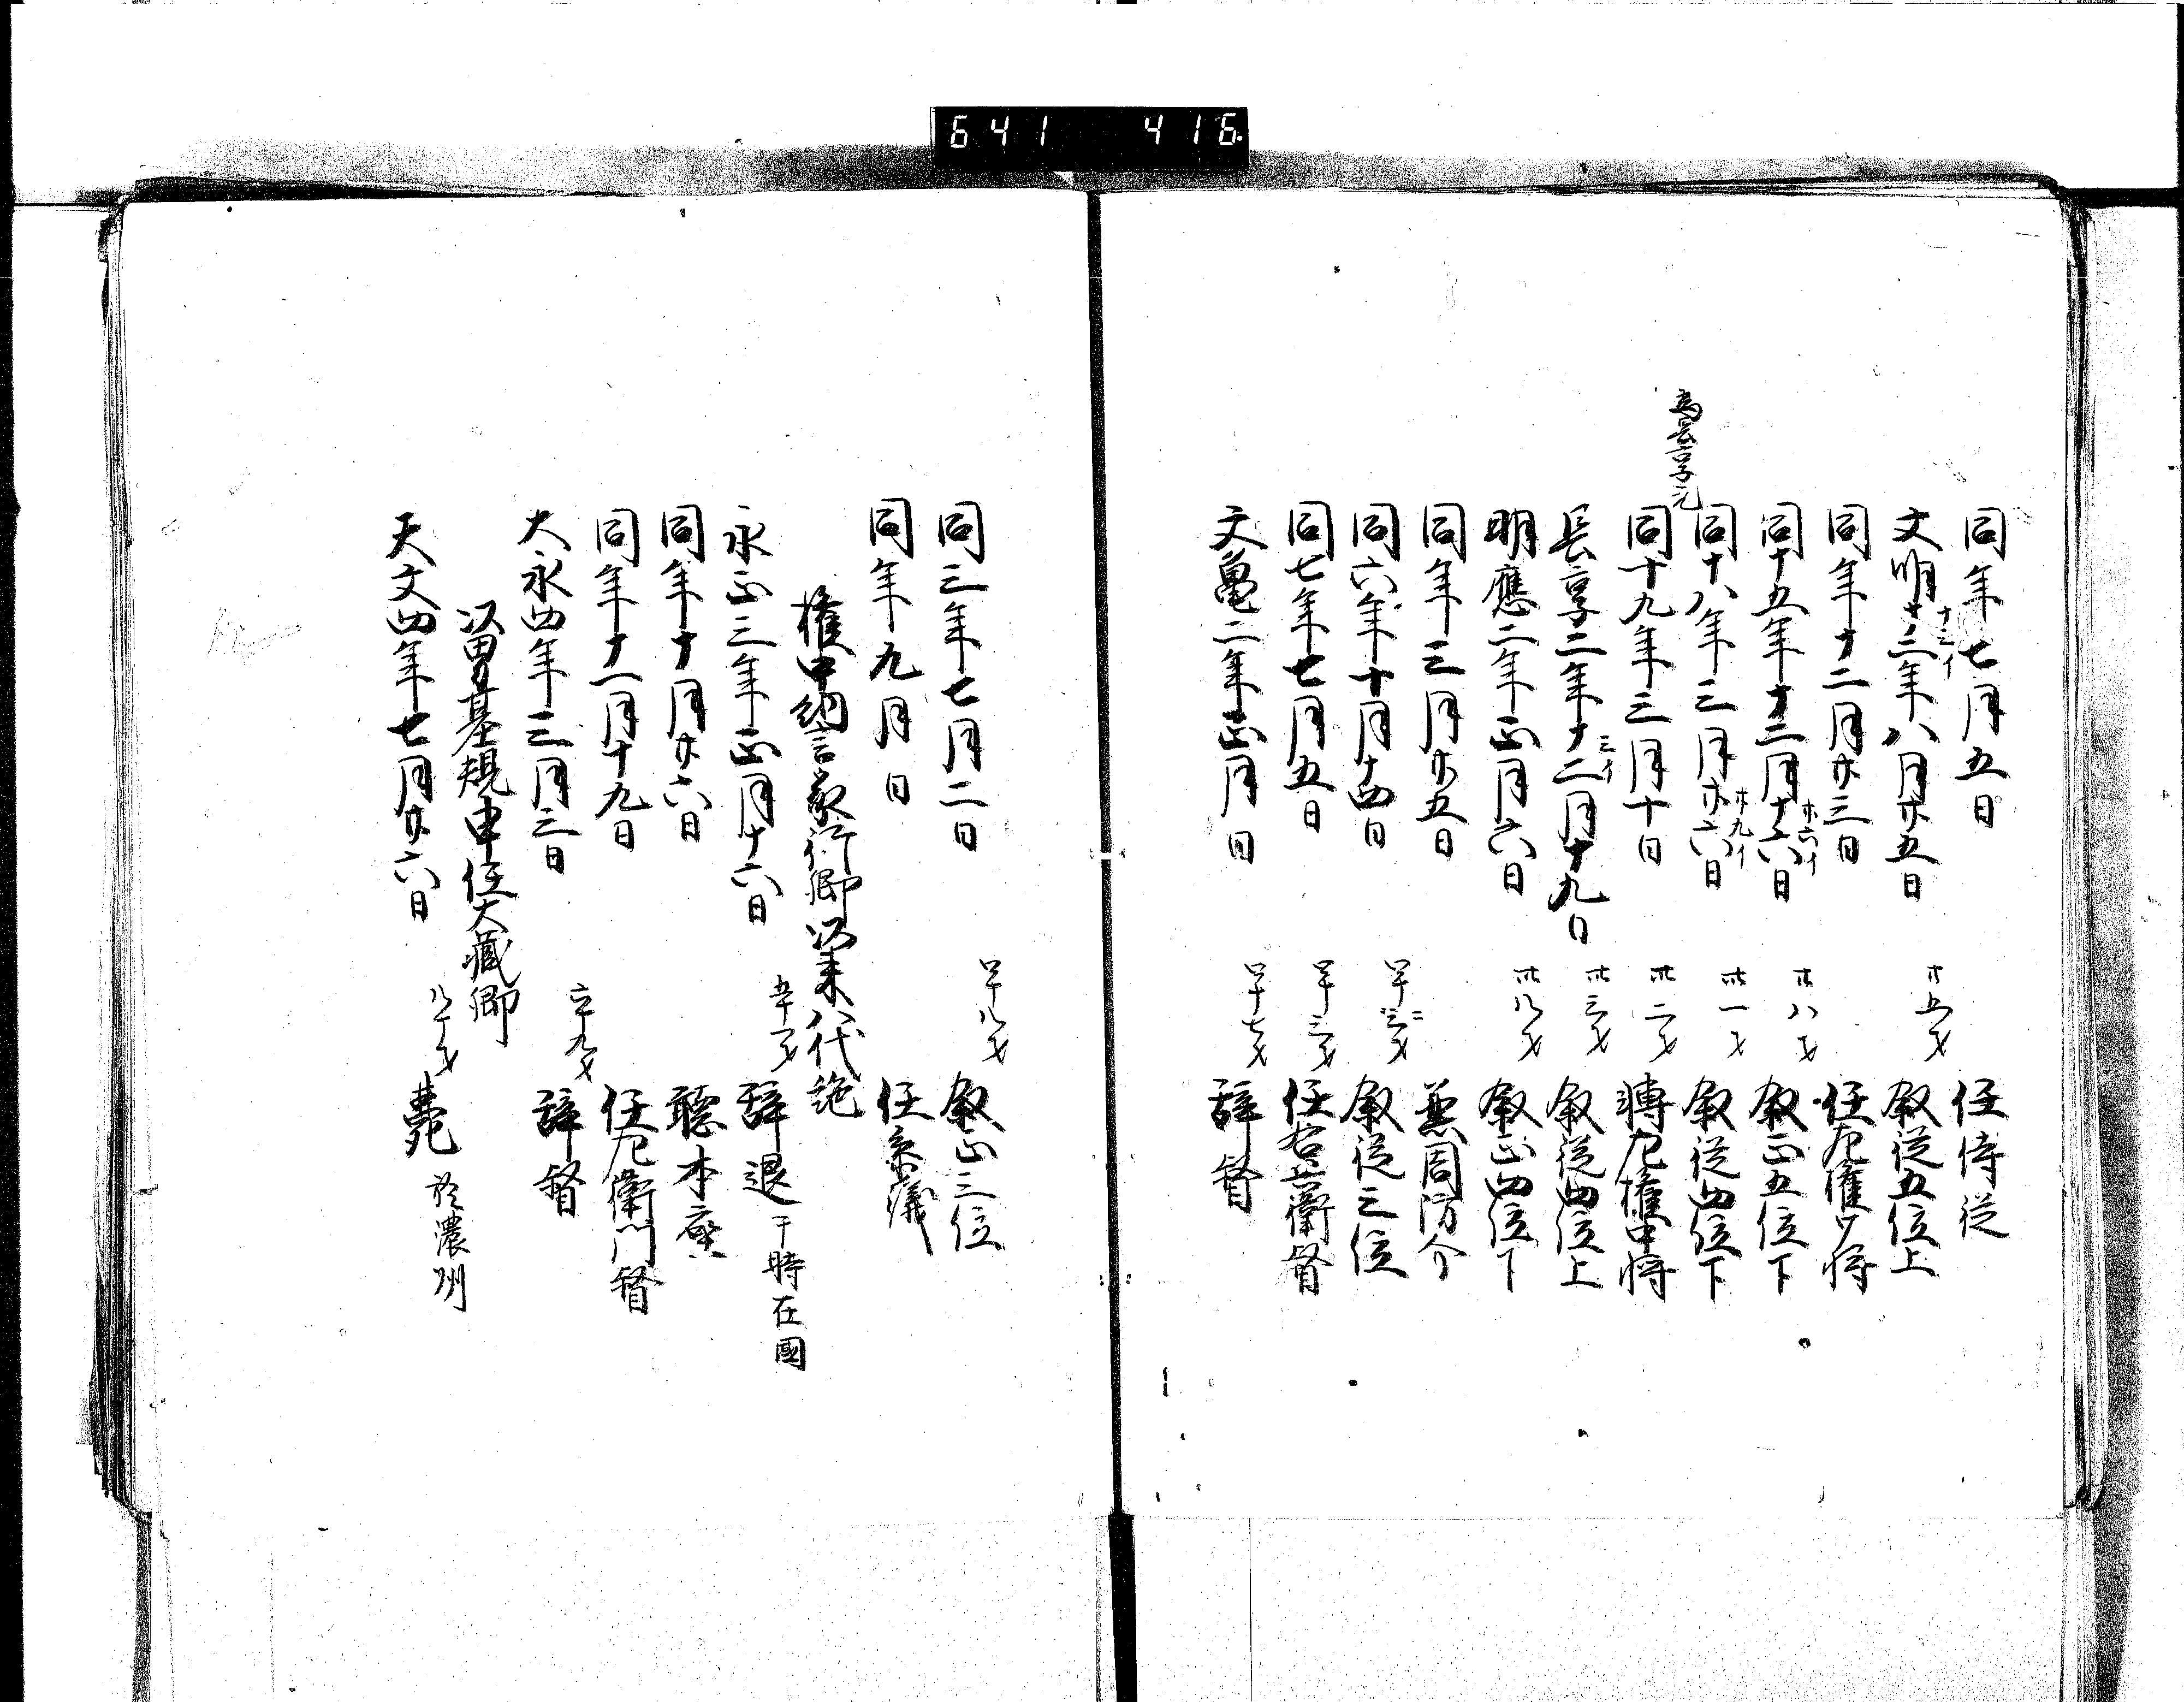 641 416
同年七月五日 任侍従
文明十三年八月廿五日 廿五才 叙従五位上
十二イ
同年十二月廿三日 任左権少将
同十五年十二月十六日 廿八才 叙正五位下
廿六イ
同十八年三月廿六日 卅一才 叙従四位下
廿九イ
為長享元
同十九年三月十日 卅二才 転左権中将
長享二年十二月十九日 卅三才 叙従四位上
三イ
明應二年正月六日 卅八才 叙正四位下
同年三月廿五日 兼周防介
同六年十月十四日 叙従三位
同七年七月五日 四十三才 任右兵衛督
文亀二年正月日 四十七才 辞督
同三年七月二日 四十八才 叙正三位
同年九月日 任参議
権中納言家行卿以来八代絶
永正三年正月十六日 五十一才 辞退 于時在國
同年十月廿六日 聴本座
同年十一月十九日 任左衛門督
大永四年三月三日 六十九才 辞督
以男基規申任大蔵卿
天文四年七月廿六日 八十才 薨 於濃州